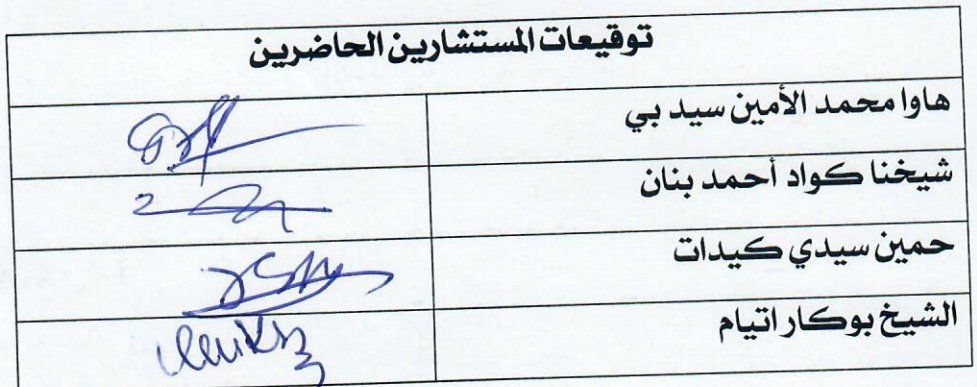 توقيعات المستشارين الحاضرين
هاوا محمد الأمين سيد بي
شيخنا كواد أحمد بنان
حمين سيدي كيدات
الشيخ بوكار اتيام